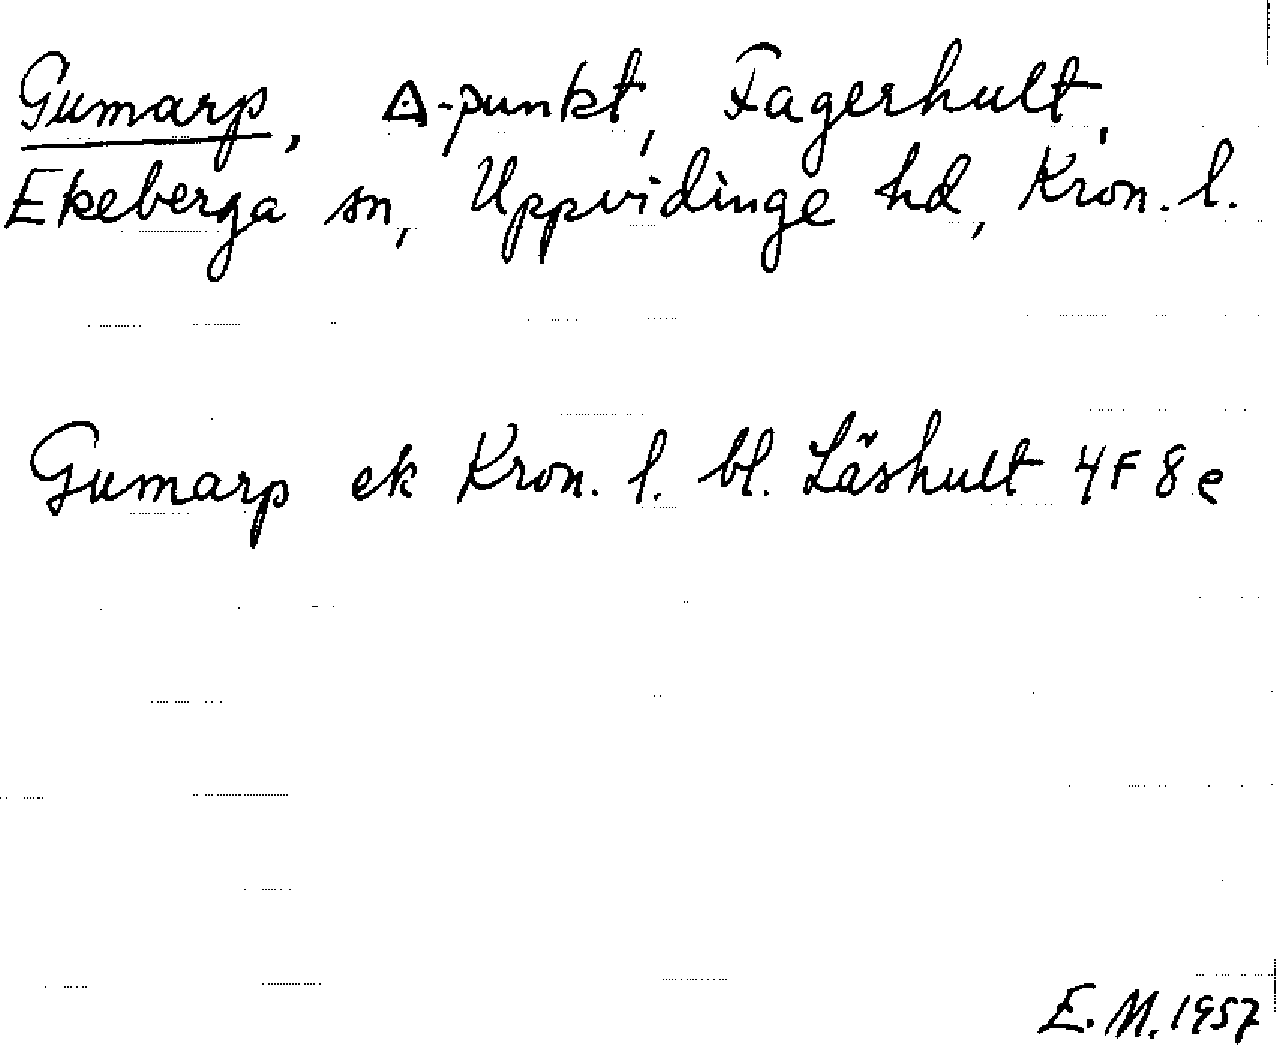 Gumarp, Δ-punkt, Fagerhult,
Ekeberga sn, Uppvidinge hd, Kron. l.
Gumarp ek Kron. l. bl. Läshult 4F8e
E.M. 1957